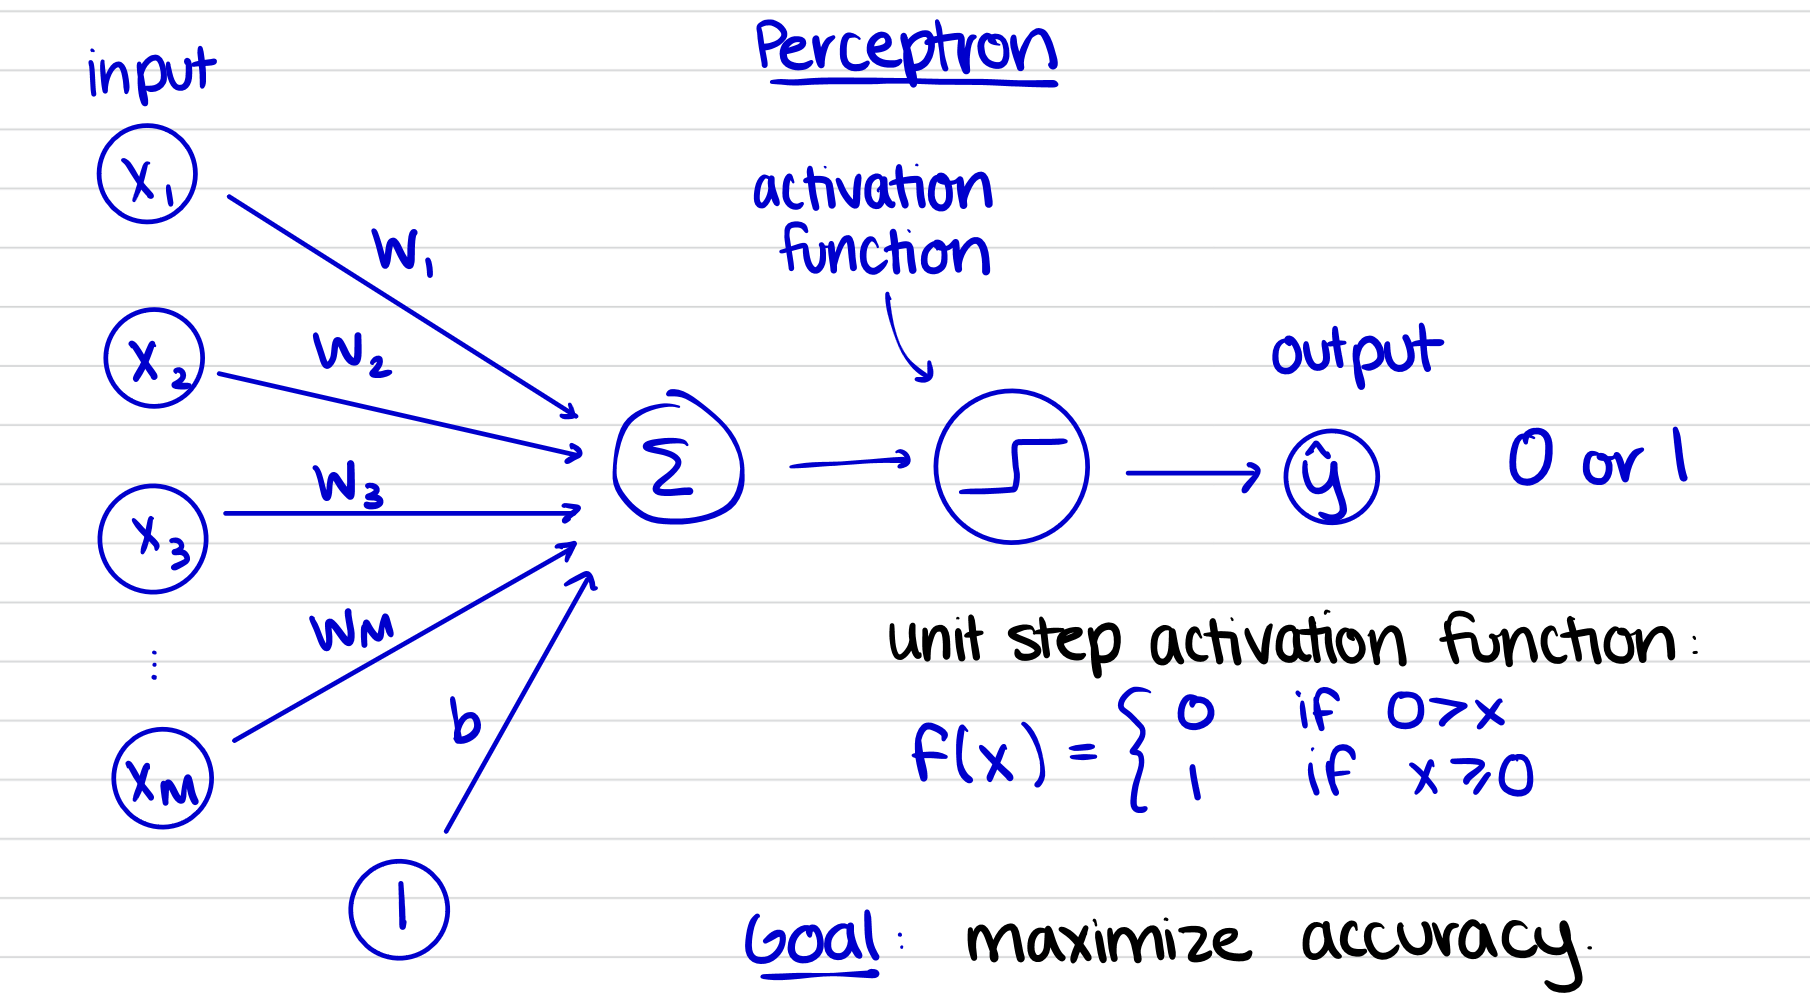 Perceptron
input
x₁
w₁
x₂
w₂
x₃
w₃
⋮
x_M
w_M
1
b
Σ
activation
function
output
ŷ
0 or 1
unit step activation function:
f(x) = { 0 if 0>x
1 if x⩾0
Goal: maximize accuracy.